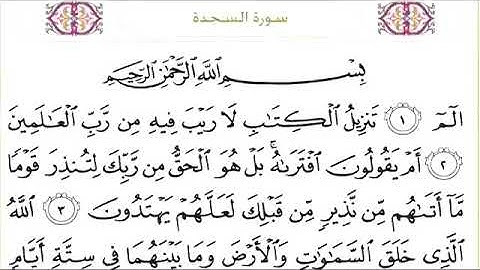 سورة السجدة
بِسْمِ اللَّهِ الرَّحْمَٰنِ الرَّحِيمِ
الٓمٓ ١ تَنزِيلُ الْكِتَابِ لَا رَيْبَ فِيهِ مِن رَّبِّ الْعَالَمِينَ
٢ أَمْ يَقُولُونَ افْتَرَاهُ ۚ بَلْ هُوَ الْحَقُّ مِن رَّبِّكَ لِتُنذِرَ قَوْمًا
مَّا أَتَاهُم مِّن نَّذِيرٍ مِّن قَبْلِكَ لَعَلَّهُمْ يَهْتَدُونَ ٣ اللَّهُ
الَّذِي خَلَقَ السَّمَاوَاتِ وَالْأَرْضَ وَمَا بَيْنَهُمَا فِي سِتَّةِ أَيَّامٍ